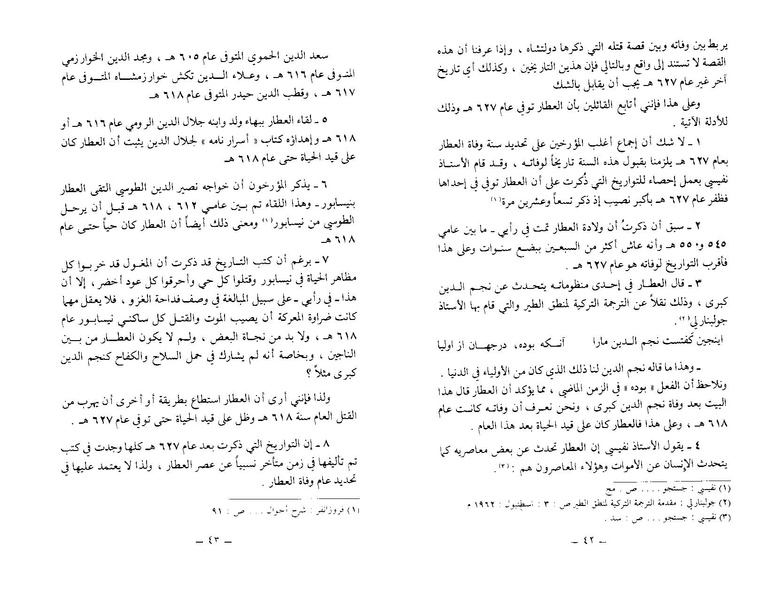 يربط بين وفاته وبين قصة قتله التي ذكرها دولتشاه ، وإذا عرفنا أن هذه
القصة لا تستند إلى واقع وبالتالي فإن هذين التاريخين ، وكذلك أي تاريخ
آخر غير عام ٦٢٧ هـ يجب أن يقابل بالشك
وعلى هذا فإنني أتابع القائلين بأن العطار توفي عام ٦٢٧ هـ وذلك
للأدلة الآتية .
١ ـ لا شك أن إجماع أغلب المؤرخين على تحديد سنة وفاة العطار
بعام ٦٢٧ هـ يلزمنا بقبول هذه السنة تاريخاً لوفاته ، وقد قام الأستاذ
نفيسي بعمل إحصاء للتواريخ التي ذُكرت على أن العطار توفي في إحداها
فظفر عام ٦٢٧ هـ بأكبر نصيب إذ ذكر تسعاً وعشرين مرة(١)
٢ ـ سبق أن ذكرتُ أن ولادة العطار تمت في رأيي ـ ما بين عامي
٥٤٥ و ٥٥٠ هـ وأنه عاش أكثر من السبعين ببضع سنوات وعلى هذا
فأقرب التواريخ لوفاته هو عام ٦٢٧ هـ .
٣ ـ قال العطار في إحدى منظوماته يتحدث عن نجم الدين
كبرى ، وذلك نقلاً عن الترجمة التركية لمنطق الطير والتي قام بها الأستاذ
جولبنارلي(٢).
اينجين كفتست نجم الدين مارا آنكه بوده، درجهان از اوليا
ـ وهذا ما قاله نجم الدين لنا ذلك الذي كان من الأولياء في الدنيا .
ونلاحظ أن الفعل « بوده » في الزمن الماضي ، مما يؤكد أن العطار قال هذا
البيت بعد وفاة نجم الدين كبرى ، ونحن نعرف أن وفاته كانت عام
٦١٨ هـ ، وعلى هذا فالعطار كان على قيد الحياة بعد هذا العام .
٤ ـ يقول الأستاذ نفيسي إن العطار تحدث عن بعض معاصريه كما
يتحدث الإنسان عن الأموات وهؤلاء المعاصرون هم : (٣).
(١) نفيسي : جستجو .... ص . مج
(٢) جولبنارلي : مقدمة الترجمة التركية لمنطق الطير ص : ٣ : اسطنبول : ١٩٦٢ م
(٣) نفيسي : جستجو ... ص : سد .
ـ ٤٢ ـ
سعد الدين الحموي المتوفى عام ٦٠٥ هـ ، ومجد الدين الخوارزمي
المتوفى عام ٦١٦ هـ ، وعلاء الدين تكش خوارزمشاه المتوفى عام
٦١٧ هـ ، وقطب الدين حيدر المتوفى عام ٦١٨ هـ
٥ ـ لقاء العطار ببهاء ولد وابنه جلال الدين الرومي عام ٦١٦ هـ أو
٦١٨ هـ وإهداؤه كتاب « أسرار نامه » لجلال الدين يثبت أن العطار كان
على قيد الحياة حتى عام ٦١٨ هـ
٦ ـ يذكر المؤرخون أن خواجه نصير الدين الطوسي التقى العطار
بنيسابور ـ وهذا اللقاء تم بين عامي ٦١٢ ، ٦١٨ هـ قبل أن يرحل
الطوسي من نيسابور(١) ومعنى ذلك أيضاً أن العطار كان حياً حتى عام
٦١٨ هـ
٧ ـ برغم أن كتب التاريخ قد ذكرت أن المغول قد خربوا كل
مظاهر الحياة في نيسابور وقتلوا كل حي وأحرقوا كل عود أخضر ، إلا أن
هذا ـ في رأيي ـ على سبيل المبالغة في وصف فداحة الغزو ، فلا يعقل مهما
كانت ضراوة المعركة أن يصيب الموت والقتل كل ساكني نيسابور عام
٦١٨ هـ ، ولا بد من نجاة البعض ، ولم لا يكون العطار من بين
الناجين ، وبخاصة أنه لم يشارك في حمل السلاح والكفاح كنجم الدين
كبرى مثلاً ؟
ولذا فإنني أرى أن العطار استطاع بطريقة أو أخرى أن يهرب من
القتل العام سنة ٦١٨ هـ وظل على قيد الحياة حتى توفي عام ٦٢٧ هـ .
٨ ـ إن التواريخ التي ذكرت بعد عام ٦٢٧ هـ كلها وجدت في كتب
تم تأليفها في زمن متأخر نسبياً عن عصر العطار ، ولذا لا يعتمد عليها في
تحديد عام وفاة العطار .
(١) فروزانفر : شرح أحوال ... ص : ٩١
ـ ٤٣ ـ